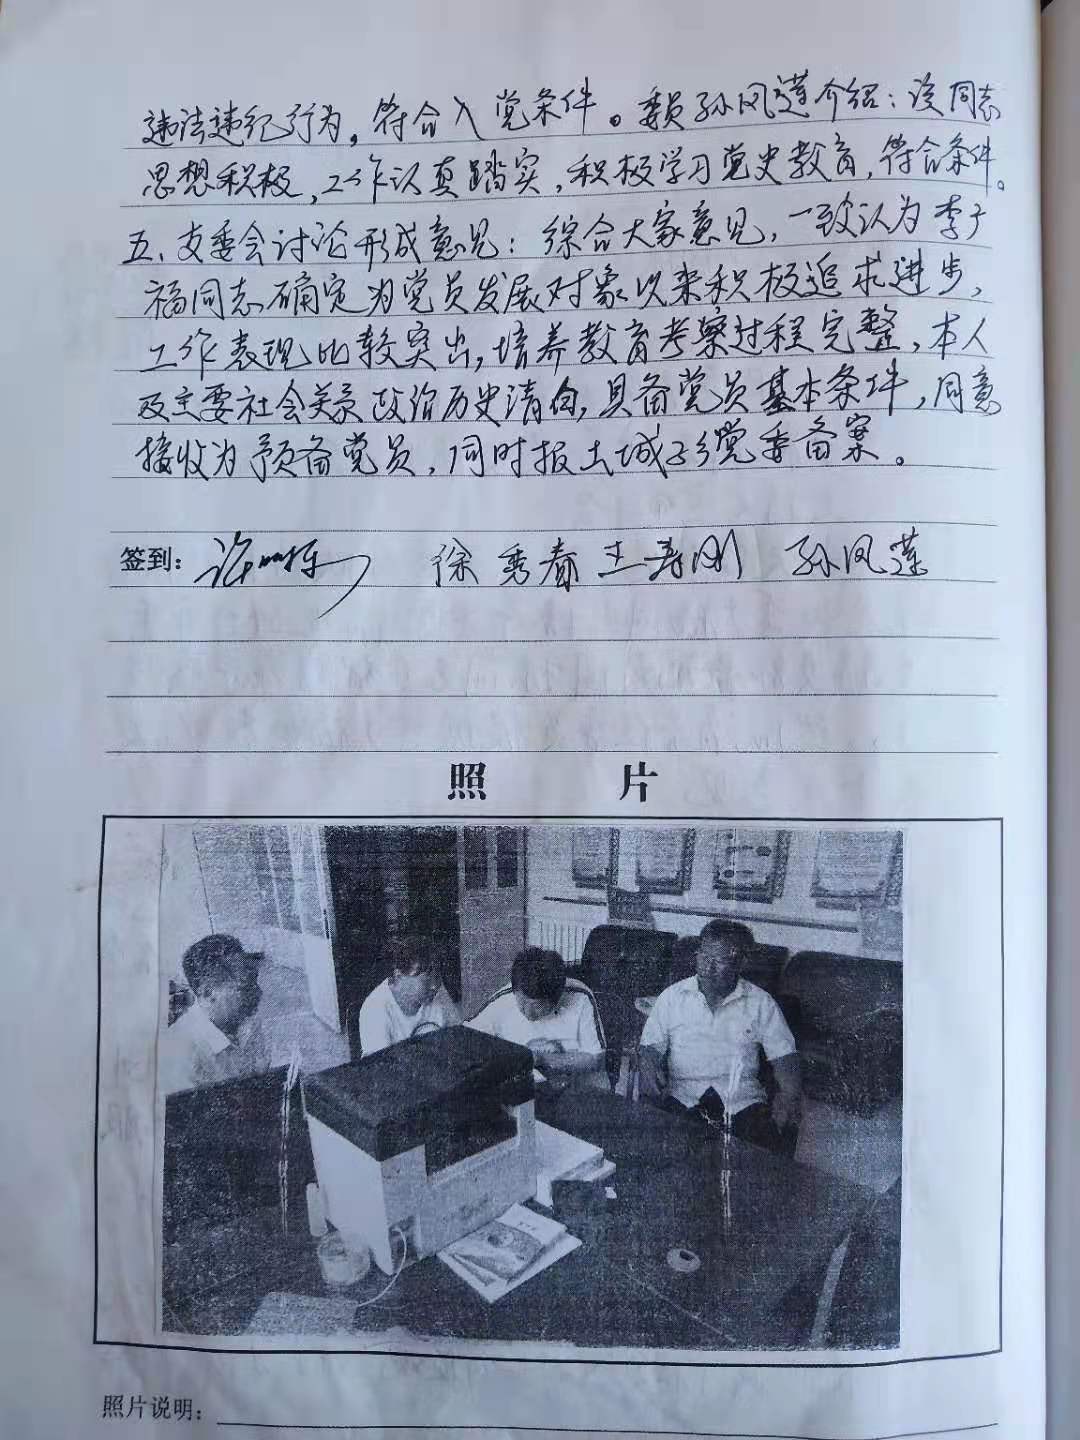 违法违纪行为，符合入党条件。委员孙凤莲介绍：该同志
思想积极，工作认真踏实，积极学习党史教育，符合条件。
五、支委会讨论形成意见：综合大家意见，一致认为李子
福同志确定为党员发展对象以来积极追求进步，
工作表现比较突出，培养教育考察过程完整，本人
及主要社会关系政治历史清白，具备党员基本条件，同意
接收为预备党员，同时报土城子乡党委备案。
签到： 徐秀春 王寿刚 孙凤莲
照 片
照片说明：